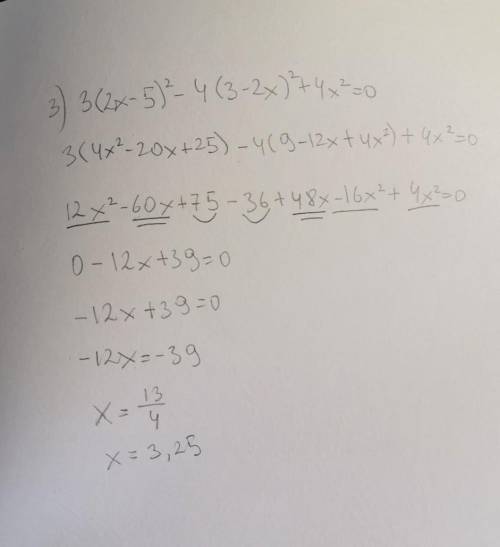 3) 3(2x-5)²-4(3-2x)²+4x²=0
3(4x²-20x+25)-4(9-12x+4x²)+4x²=0
12x²-60x+75-36+48x-16x²+4x²=0
0-12x+39=0
-12x+39=0
-12x=-39
x=13/4
x=3,25